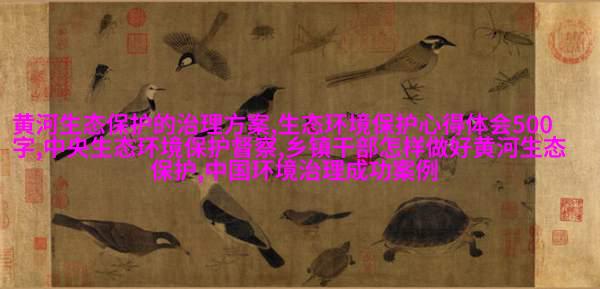 黄河生态保护的治理方案,生态环境保护心得体会500
字,中央生态环境保护督察,乡镇干部怎样做好黄河生态
保护,中国环境治理成功案例